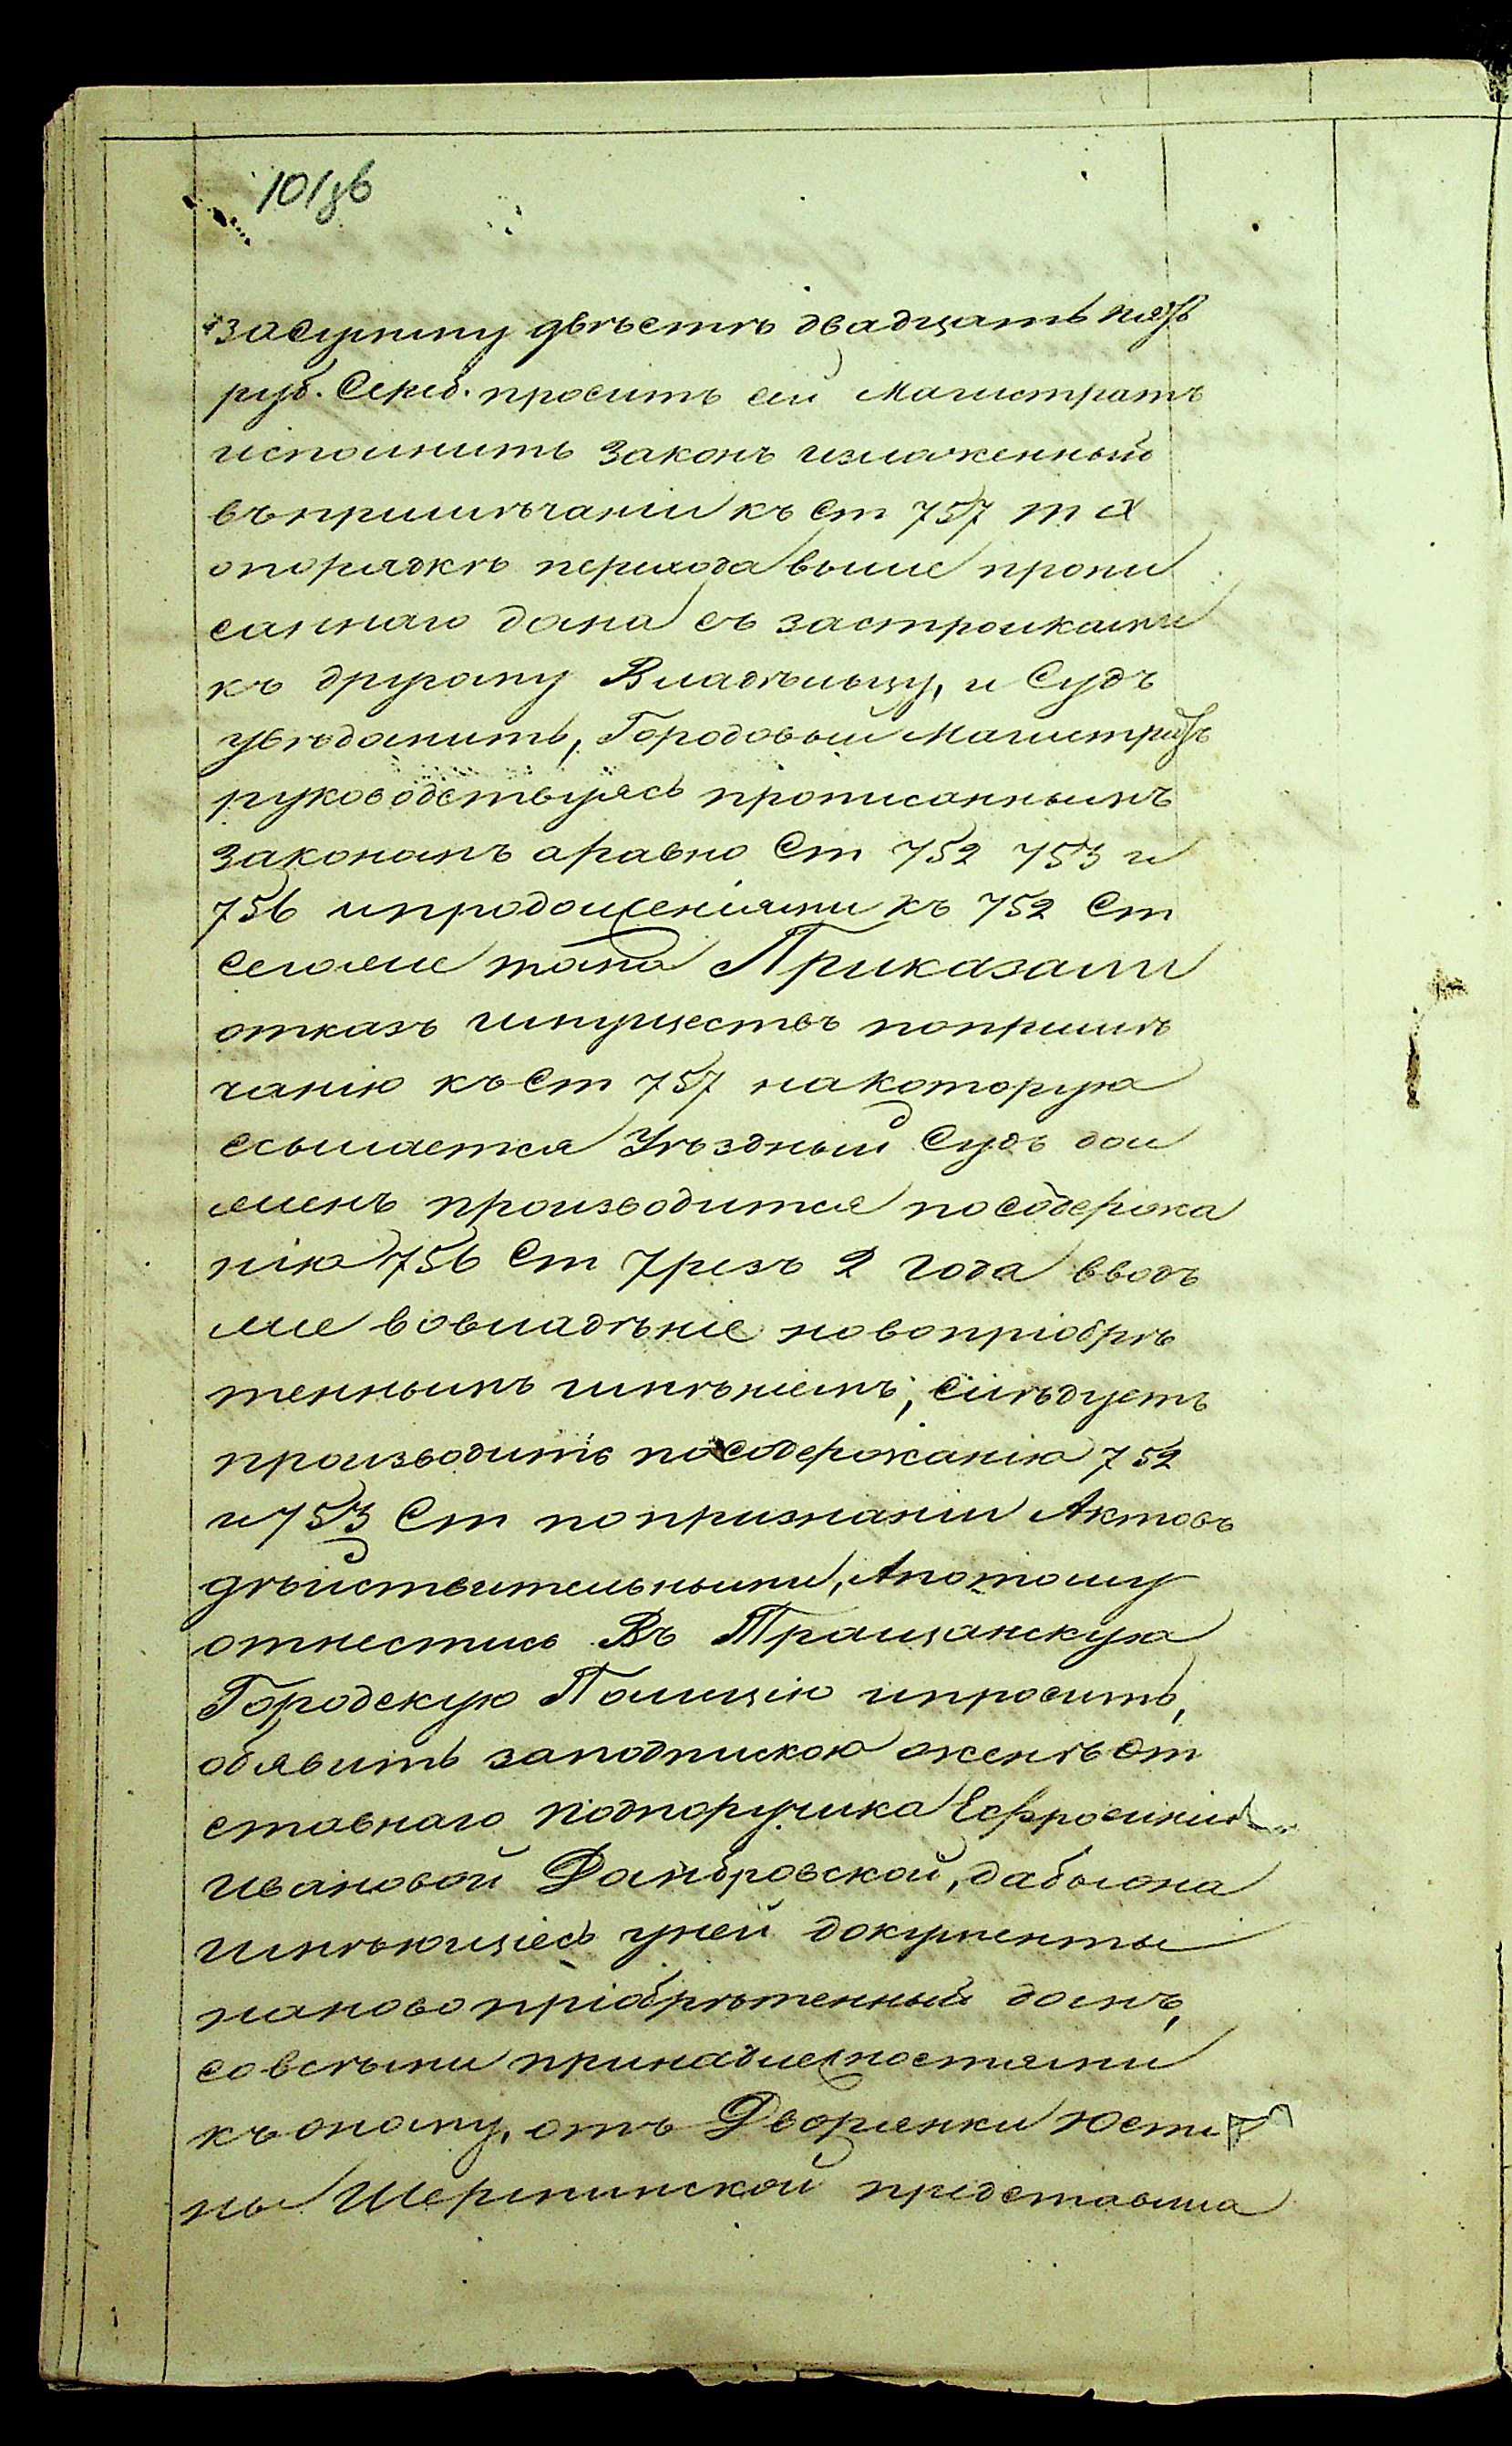 101зв
засумму двѣстѣ двадцать пять
руб. Сереб. проситъ сей Магистратъ
исполнить Законъ изложенный
въпримѣчаніи къ Ст 757 т Х
опорядкѣ перехода выше пропи
саннаго дома съ застройками
къ другому Владѣльцу, и Судъ
увѣдомить, Городовый Магистратъ
руководствуясь прописаннымъ
закономъ аравно Ст 752 753 и
756 ипродолженіями къ 752 Ст
Сегоже тома Приказали
отказъ имуществъ попримѣ
чанію къ Ст 757 на которую
ссылается Уѣздный Судъ дол
женъ производится посодержа
нію 756 Ст Чрезъ 2 года вводъ
же вовладѣніе новопріобрѣ
теннымъ имѣніемъ, слѣдуетъ
производить посодержанію 752
и 753 Ст попризнаніи Актовъ
дѣйствительными, Апотому
отнестись Въ Тращанскую
Городскую Полицію ипросить,
обявить заподпискою женѣ От
ставнаго подпоручика Ефросиніи
Ивановой Домбровской, дабыона
имѣющіесь уней документы
наново пріобрѣтенный домъ,
совсѣми принадлежностями
къ оному, отъ Дворянки Юсти
ны Шерминской представила